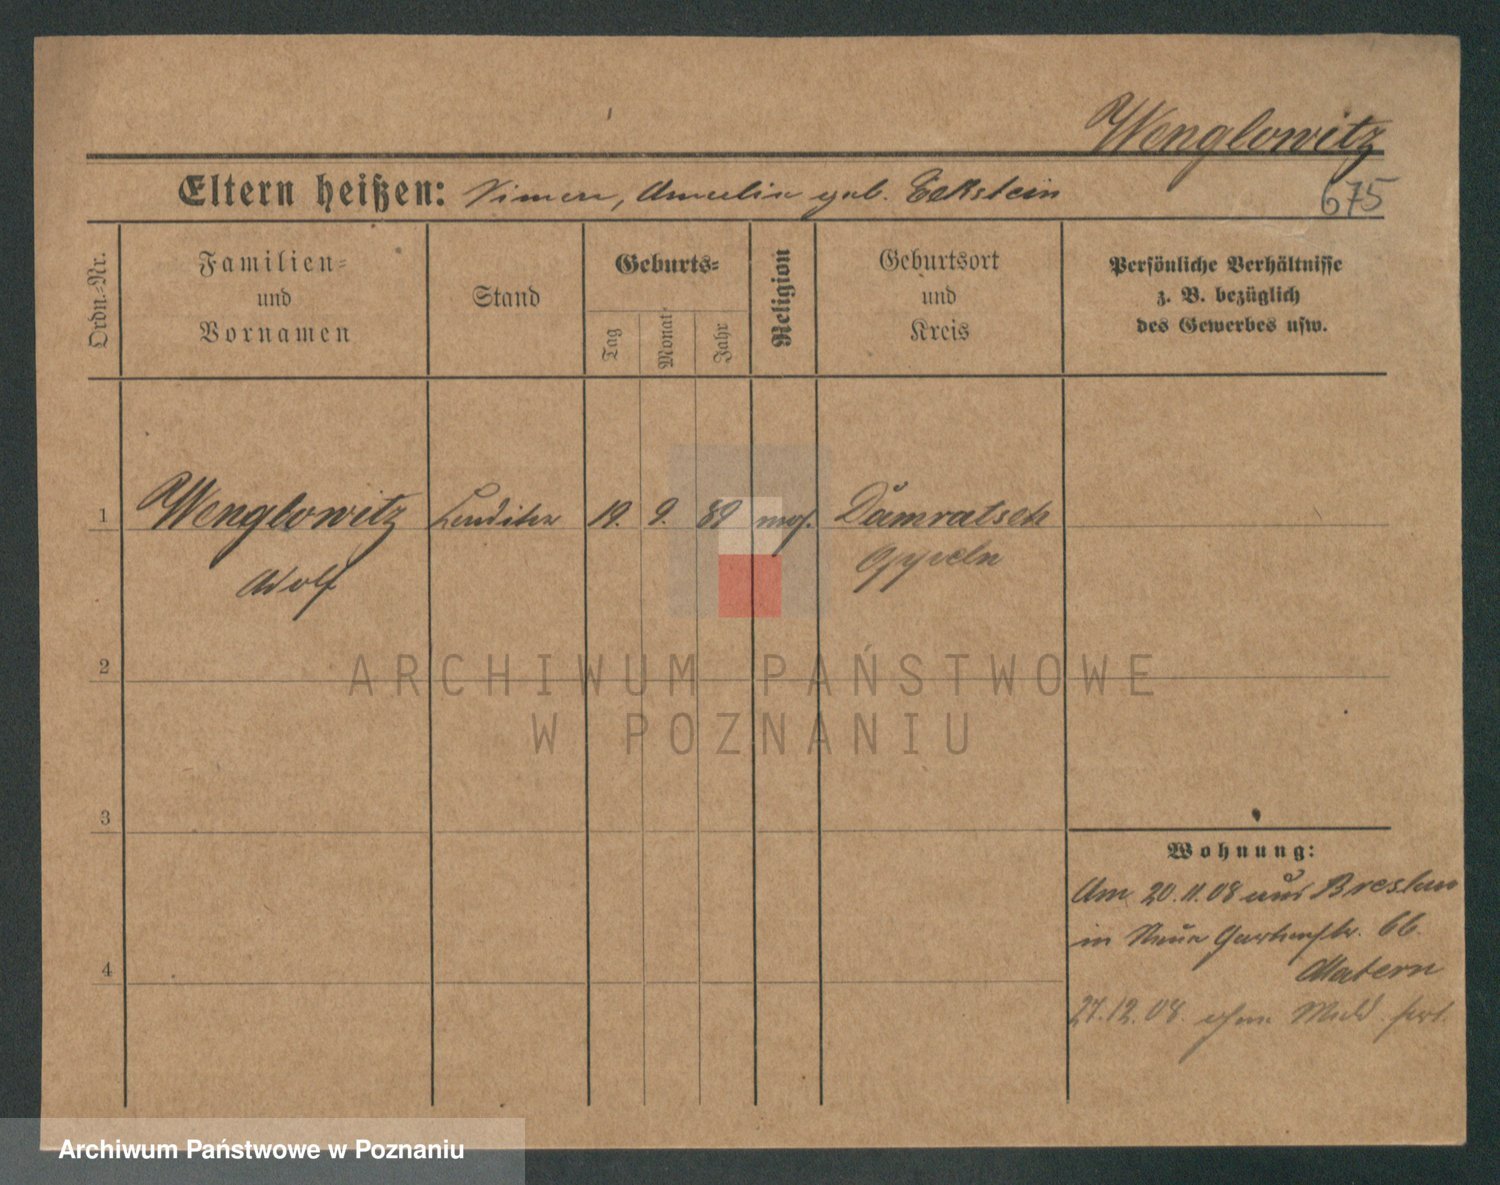 Wenglowitz
Eltern heißen: Simon, Amalie geb. Eckstein
675
Ordn.-Nr.
Familien-
und
Vornamen
Stand
Geburts-
Tag
Monat
Jahr
Religion
Geburtsort
und
Kreis
Persönliche Verhältnisse
z. B. bezüglich
des Gewerbes usw.
1 Wenglowitz Konditor 19. 9. 89 mos. Damratsch
Adolf Oppeln
2
3
4
Wohnung:
Am 20.11.08 aus Breslau
in Neue Gartenstr. 66.
Matern
27.12.08. ohne Meld. fort.
ARCHIWUM PAŃSTWOWE
W POZNANIU
Archiwum Państwowe w Poznaniu